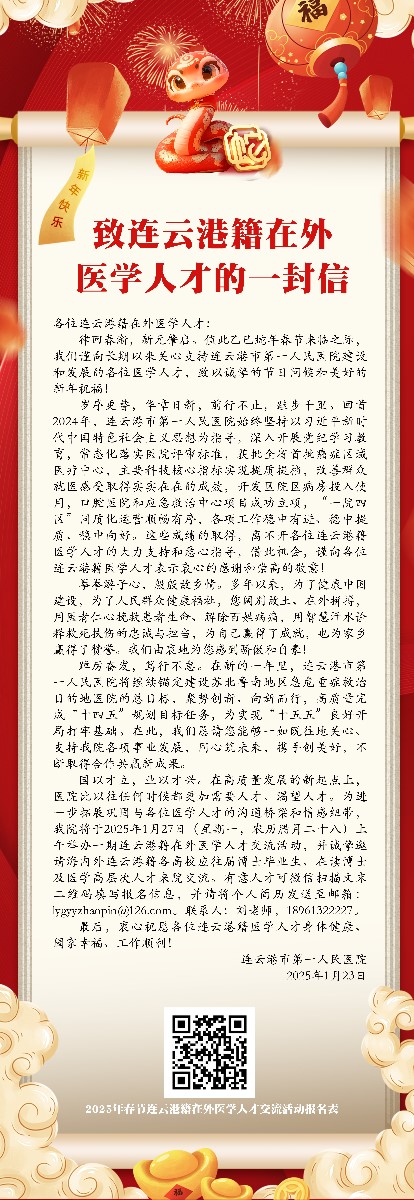 福
新年快乐
致连云港籍在外
医学人才的一封信
各位连云港籍在外医学人才：
律回春渐，新元肇启。值此乙巳蛇年春节来临之际，
我们谨向长期以来关心支持连云港市第一人民医院建设
和发展的各位医学人才，致以诚挚的节日问候和美好的
新年祝福！
岁序更替，华章日新，前行不止，跬步千里。回首
2024年，连云港市第一人民医院始终坚持以习近平新时
代中国特色社会主义思想为指导，深入开展党纪学习教
育，常态化落实医院评审标准，获批全省首批癌症区域
医疗中心，主要科技核心指标实现提质提档，改善群众
就医感受取得实实在在的成效，开发区院区病房投入使
用，口腔医院和应急救治中心项目成功立项，“一院四
区”同质化运营顺畅有序，各项工作稳中有进、稳中提
质、稳中向好。这些成绩的取得，离不开各位连云港籍
医学人才的大力支持和悉心指导，借此机会，谨向各位
连云港籍医学人才表示衷心的感谢和崇高的敬意！
拳拳游子心，殷殷故乡情。多年以来，为了健康中国
建设，为了人民群众健康福祉，您阔别故土、在外拼搏，
用医者仁心挽救患者生命、解除百姓病痛，用智慧汗水诠
释救死扶伤的忠诚与担当，为自己赢得了成就，也为家乡
赢得了精誉。我们由衷地为您感到骄傲和自豪！
踔厉奋发，笃行不怠。在新的一年里，连云港市第
一人民医院将继续锚定建设苏北鲁南地区急危重症救治
目的地医院的总目标，聚势创新、向新而行，高质量完
成“十四五”规划目标任务，为实现“十五五”良好开
局打牢基础。在此，我们恳请您能够一如既往地关心、
支持我院各项事业发展，同心筑未来、携手创美好，不
断取得合作共赢新成果。
国以才立，业以才兴。在高质量发展的新起点上，
医院比以往任何时候都更加需要人才、渴望人才。为进
一步拓展巩固与各位医学人才的沟通桥梁和情感纽带，
我院将于2025年1月27日（星期一，农历腊月二十八）上
午举办一期连云港籍在外医学人才交流活动，并诚挚邀
请海内外连云港籍各高校应往届博士毕业生、在读博士
及医学高层次人才来院交流。有意人才可微信扫描文末
二维码填写报名信息，并请将个人简历发送至邮箱：
lygyyzhaopin@126.com。联系人：刘老师，18961322227。
最后，衷心祝愿各位连云港籍医学人才身体健康、
阖家幸福、工作顺利！
连云港市第一人民医院
2025年1月23日
2025年春节连云港籍在外医学人才交流活动报名表
福